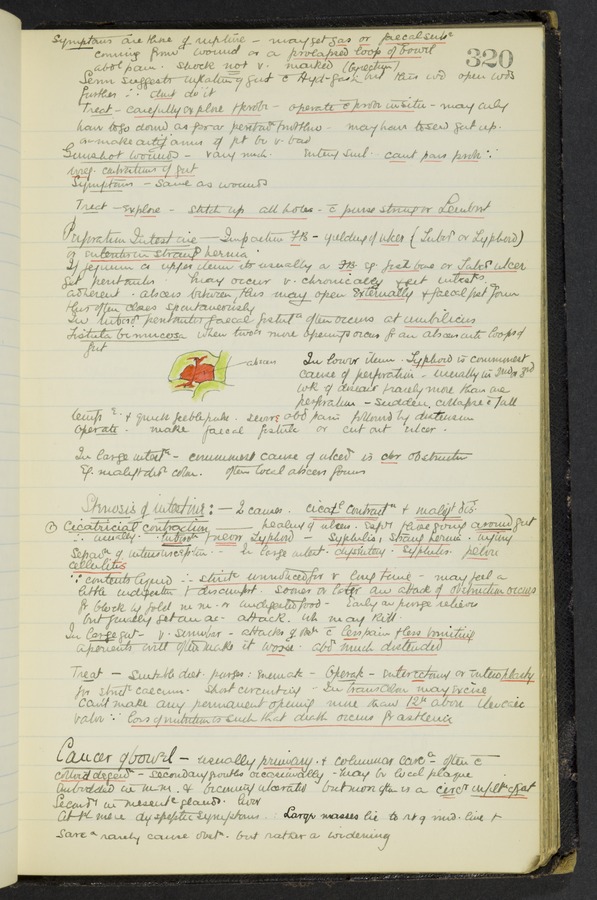 Symptoms are those of rupture - may get gas or faecal subce
coming from wound or a prolapsed loop of bowel
320
abdl pain. shock not v. marked
Senn suggests inflation of gut c Hyd-gas, but this wd open wds
further ∴ dont do it
Treat - carefully explore & probe - operate c probe in situ - may only
have to go down as far as peritm & no further - may have to sew gut up.
or make artif anus if pt be v. bad
Gunshot wounds - vary much. Entery small. cant pass probe ∵
irreg. contractions of gut
Symptoms - same as wounds
Treat - explore - stitch up all holes - c purse string or Lembert
Perforation Intestine - Impaction FB - yielding of ulcer (Tuberc or Typhoid)
or enteritis in strangd hernia
If jejunum or upper ileum its usually a FB eg fish bone or Tuberc ulcer
get peritonitis. may occur v. chronically & gut intests
adherent. abscess between, this may open externally & faecal fist form
this often closes spontaneously
In tuberc peritonitis faecal fistula often occurs at umbilicus
Fistula bimucosa when two or more openings occur fr an abscess into loops of
gut
abscess
In lower ileum. Typhoid is commonest
cause of perforation - usually in 2nd or 3rd
wk of disease & rarely more than one
perforation - sudden, collapse & fall
temp & quick feeble pulse. severe abd pain followed by distension
operate. make faecal fistula or cut out ulcer.
In large intest - commonest cause of ulced is chr obstruction
Eg. maligt dis colon. often local abscess forms
Stenosis of intestine: - 2 causes. cicatl contractn & maligt dis.
① Cicatricial contraction - healing of ulcers. espy those going around gut
∴ usually tuberc & never Typhoid - Syphilis, strang hernia. injury
Separn of intussusception - In large intest. dysentery. syphilis. pelvic
cellulitis
∵ contents liquid ∴ strictr unnoticed for v long time - may feel a
little indigestion & discomfort. sooner or later an attack of obstruction occurs
fr block by fold m.m. or undigested food - Early on purge relieves
but finally get an ac. attack. wh may kill.
In large gut - v. similar - attacks of obstn c less pain & less vomiting
aperients will often make it worse. abd much distended
Treat - suitable diet. purges: enemata - Operate - enterectomy or enteroplasty
for strict caecum. short circuiting - In trans colon may excise
Can't make any permanent opening more than 12" above ileocaec
valve ∵ loss of nutrition is such that death occurs fr asthenia
Cancer of bowel - usually primary. & columnar carca - often c
colloid degend - secondary growths occasionally - may be local plaque
embedded in m.m. & becoming ulcerated but more often is a circr infiltn of gut
Secondy in mesente glands. liver
At 1st mere dyspeptic symptoms. Large masses lie to rt of mid. line &
Sarca rarely cause obstn. but rather a widening